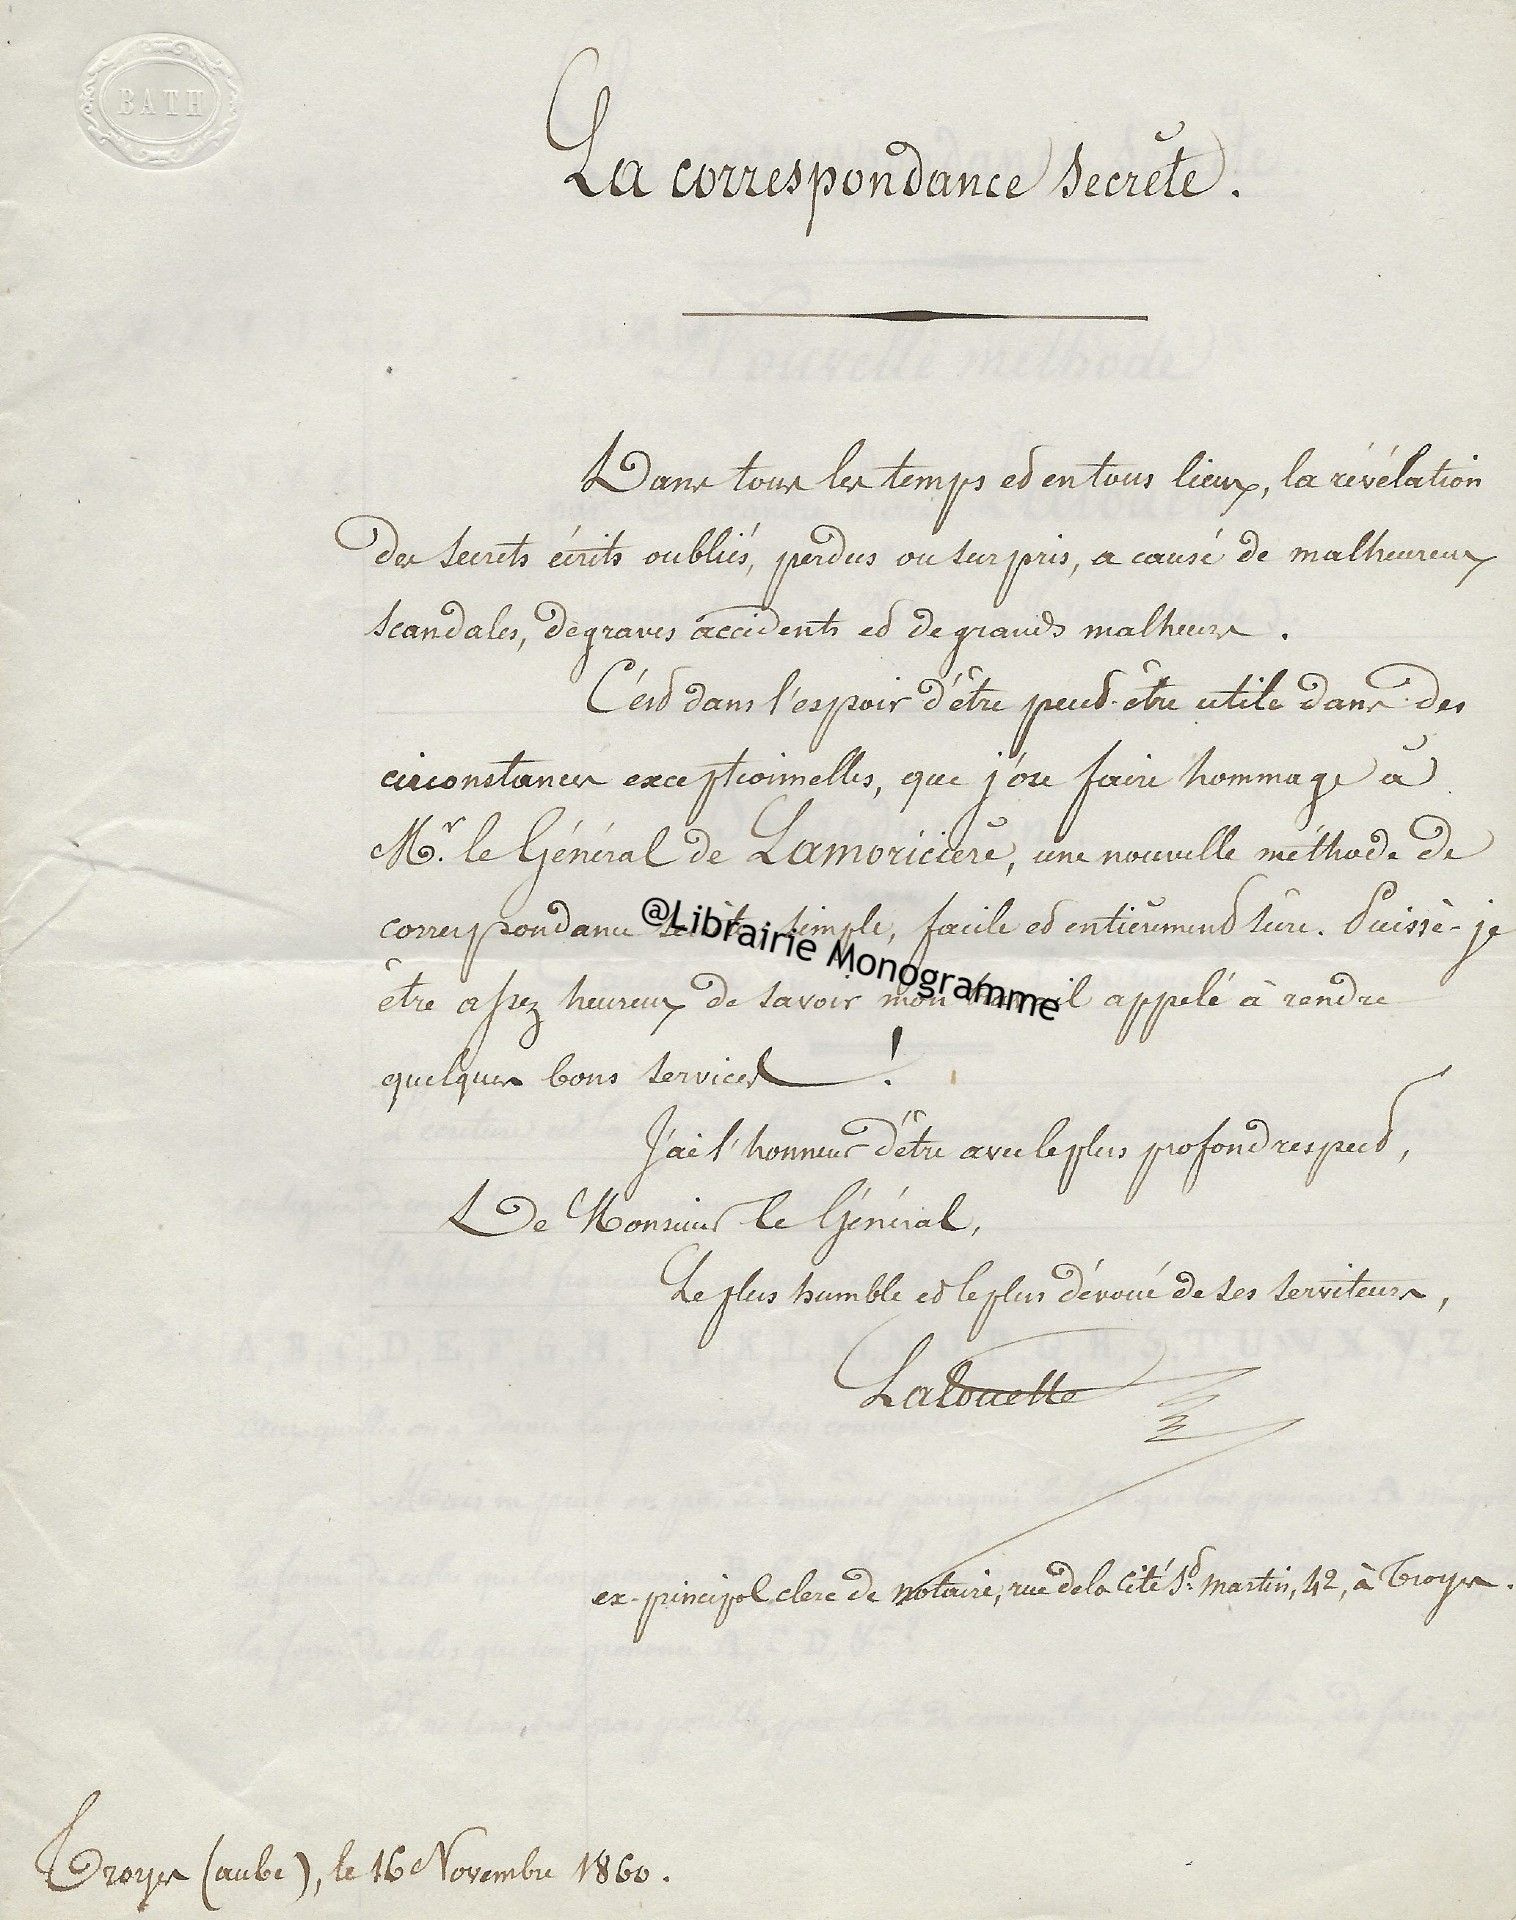 BATH
La correspondance secrète.
Dans tous les temps et en tous lieux, la révélation
des secrets écrits oubliés, perdus ou surpris, a causé de malheureux
scandales, de graves accidents et de grands malheurs.
C'est dans l'espoir d'être peut-être utile dans des
circonstances exceptionnelles, que j'ose faire hommage à
Mr. le Général de Lamoricière, une nouvelle méthode de
correspondance secrète simple, facile et entièrement sûre. Puissè-je
être assez heureux de savoir mon travail appelé à rendre
quelques bons services !
@Librairie Monogramme
J'ai l'honneur d'être avec le plus profond respect,
De Monsieur le Général,
Le plus humble et le plus dévoué de ses serviteurs,
Lalouette
ex-principal clerc de notaire, rue de la Cité St. Martin, 42, à Troyes.
Troyes (aube), le 16 Novembre 1860.